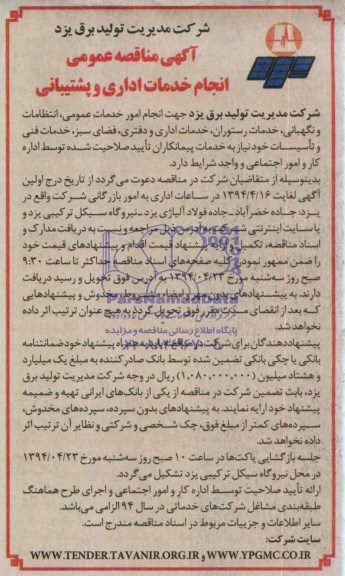 شرکت مدیریت تولید برق یزد
آگهی مناقصه عمومی
انجام خدمات اداری و پشتیبانی
شرکت مدیریت تولید برق یزد جهت انجام امور خدمات عمومی، انتظامات
و نگهبانی، خدمات رستوران، خدمات اداری و دفتری، فضای سبز، خدمات فنی
و تأسیسات خود نیاز به خدمات پیمانکاران تأیید صلاحیت شده توسط اداره
کار و امور اجتماعی و واجد شرایط دارد.
بدینوسیله از متقاضیان شرکت در مناقصه دعوت می‌گردد از تاریخ درج اولین
آگهی لغایت ۱۳۹۴/۴/۱۶ در ساعات اداری به امور بازرگانی شرکت واقع در
یزد: جاده خضرآباد - جاده فولاد آلیاژی یزد - نیروگاه سیکل ترکیبی یزد و
یا سایت اینترنتی مراجعه و نسبت به دریافت مدارک و
اسناد مناقصه، تکمیل و ارائه پیشنهاد قیمت اقدام و پیشنهادهای قیمت خود
را ضمن ممهور نمودن کلیه صفحه‌های اسناد مناقصه حداکثر تا ساعت ۹:۳۰
صبح روز سه‌شنبه مورخ ۱۳۹۴/۰۴/۲۳ به آدرس فوق تحویل و رسید دریافت
دارند. به پیشنهادهای مخدوش و پیشنهادهایی
که بعد از انقضای مدت مقرر فوق تحویل گردد به هیچ عنوان ترتیب اثر داده
نخواهد شد.
پیشنهاددهندگان برای شرکت در مناقصه باید به همراه پیشنهاد خود ضمانتنامه
بانکی یا چک بانکی تضمین شده توسط بانک صادرکننده به مبلغ یک میلیارد
و هشتاد میلیون (۱,۰۸۰,۰۰۰,۰۰۰) ریال در وجه شرکت مدیریت تولید برق
یزد، بابت تضمین شرکت در مناقصه از یکی از بانک‌های ایرانی تهیه و ضمیمه
پیشنهاد خود ارایه نمایند. به پیشنهادهای بدون سپرده، سپرده‌های مخدوش،
سپرده‌های کمتر از مبلغ فوق، چک شخصی و شرکتی و نظایر آن ترتیب اثر
داده نخواهد شد.
جلسه بازگشایی پاکت‌ها در ساعت ۱۰ صبح روز سه‌شنبه مورخ ۱۳۹۴/۰۴/۲۳
در محل نیروگاه سیکل ترکیبی یزد تشکیل می‌گردد.
ارائه تأیید صلاحیت توسط اداره کار و امور اجتماعی و اجرای طرح هماهنگ
طبقه‌بندی مشاغل شرکت‌های خدماتی در سال ۹۴ الزامی می‌باشد.
سایر اطلاعات و جزییات مربوط در اسناد مناقصه مندرج است.
سایت شرکت:
WWW.TENDER.TAVANIR.ORG.IR و WWW.YPGMC.CO.IR
ParsNamadData
پایگاه اطلاع رسانی مناقصه و مزایده